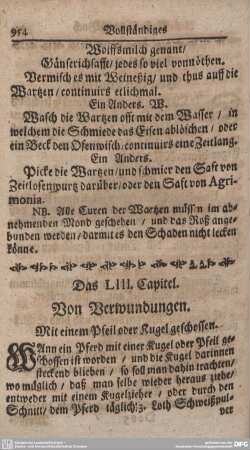 914 Vollständiges
Wolffsmilch genant/
Gänserichsafft/ jedes so viel vonnöthen.
Vermisch es mit Weinessig/ und thus auff die
Wartzen/ continuirs etlichmal.
Ein Anders. W.
Wasch die Wartzen offt mit dem Wasser/ in
welchem die Schmiede das Eisen ablöschen/ oder
ein Beck den Ofenwisch. continuirs eine Zeitlang.
Ein Anders.
Picke die Wartzen/ und schmier den Safft von
Zeitlosenwurtz darüber/ oder den Safft von Agri-
monia.
NB. Alle Curen der Wartzen müssn im ab-
nehmenden Mond geschehen/ und das Roß ange-
bunden werden/ damit es den Schaden nicht lecken
könne.
Das LIII. Capitel.
Von Verwundungen.
Mit einem Pfeil oder Kugel geschossen.
WAnn ein Pferd mit einer Kugel oder Pfeil ge-
schossen ist worden/ und die Kugel darinnen
steckend blieben/ so soll man dahin trachten/
wo möglich/ daß man selbe wieder heraus ziehe/
entweder mit einem Kugelzieher/ oder durch den
Schnitt/ dem Pferd täglich 3. Loth Schweißpul-
ver